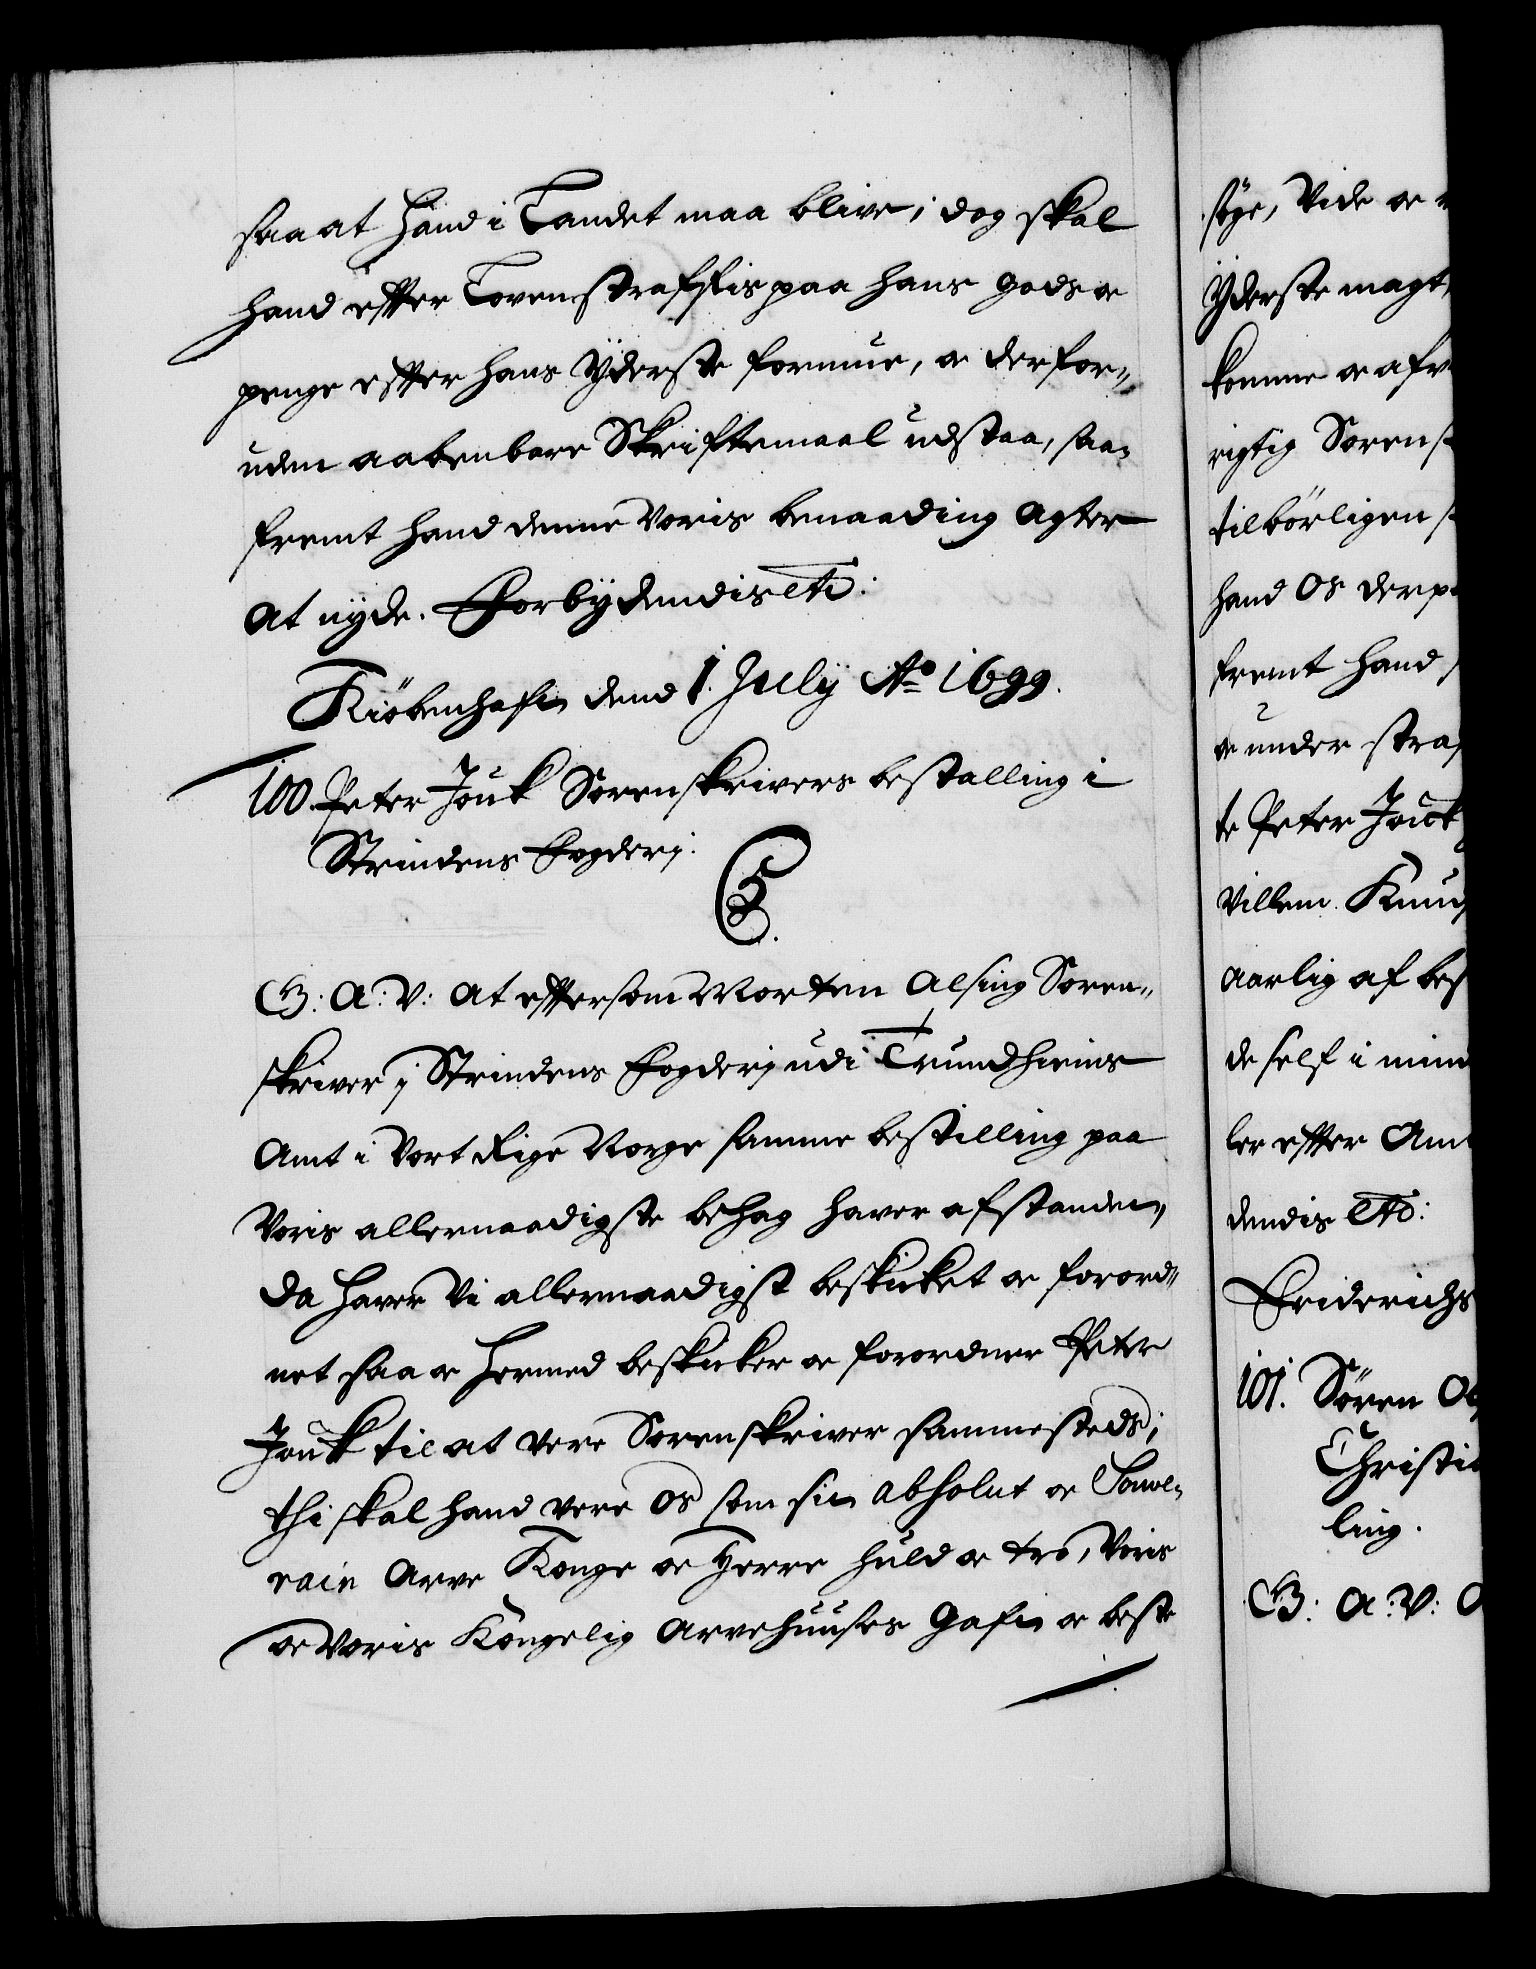 saa at hand i Landet maa blive; dog skal
hand effter Loven straffis paa hans gods oc
penge effter hans Yderste formue, oc der for„
uden aabenbare Skriftemaal udstaa, saa„
fremt hand denne Voris benaading agter
at nyde. Forbydendis etc:
Kiöbenhafn dend 1. July Ao 1699.
100 Peter Jouk Sorenskrivers bestalling i
Strindens Fogderj.
C5.
G: A: V: at effersom Morten Alsing Soren„
skriver j Strindens Fogderj udi Trundhiems
Amt i Vort Rige Norge samme bestilling paa
Voris allernaadigste behag haver afstanden,
da haver Vi allernaadigst beskicket oc forord„
net saa oc hermed beskicker oc forordner Peter
Jouk til at vere Sorenskriver sammesteds;
thi skal hand vere Os som sin absolut oc Souve„
rain Arve Konge oc Herre huld oc tro, Voris
oc Voris Kongelig Arvehuuses Gafn oc beste
söge, Vide oc
Yderste magt,
komme oc
rigtig Soren
tilbörligen
hand Os
fremt hand
oc under
te Peter Jouk
Villem
aarlig af
de self i
ler effter
dendis etc:
Friderichs
101. Sören
ling.
G: A: V: